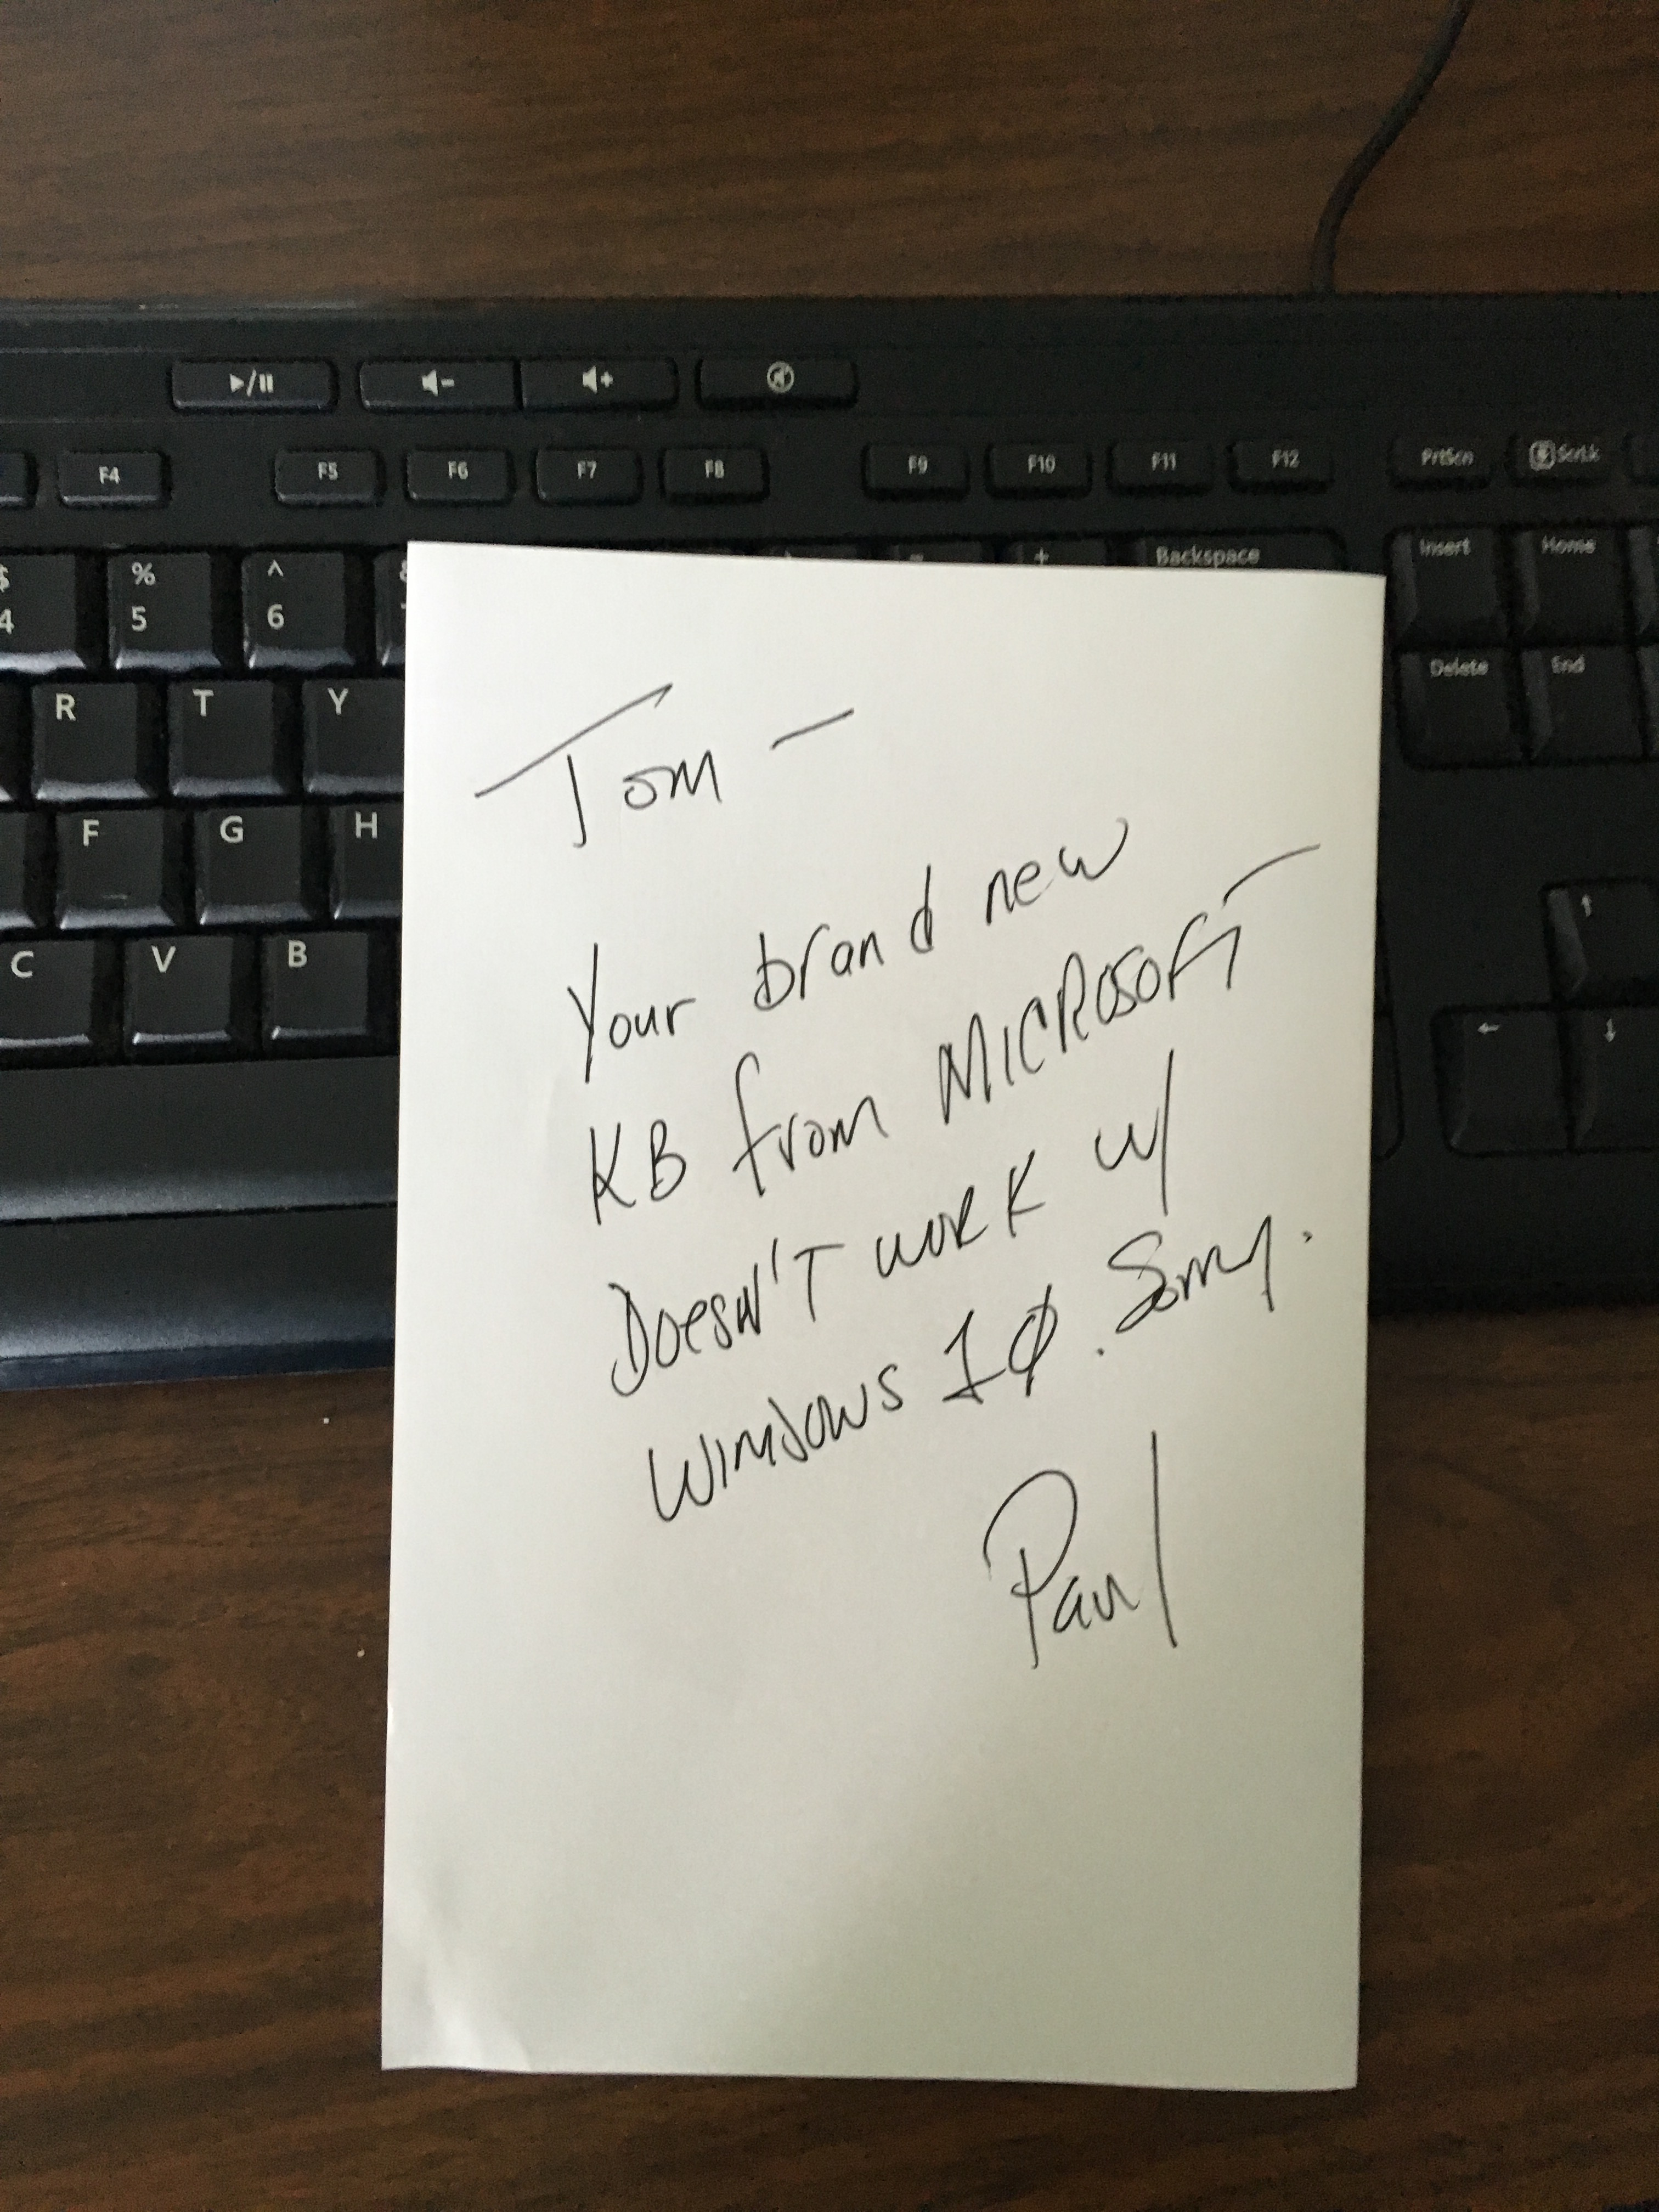 F4 F5 F6 F7 F8 F9 F10 F11 F12 PrtScn ScrLk
Backspace Insert Home
$ % ^
4 5 6
R T Y Delete End
F G H
C V B
Tom —
Your brand new
KB from MICROSOFT
DOESN'T WORK w/
WINDOWS 10. Sorry.
Paul